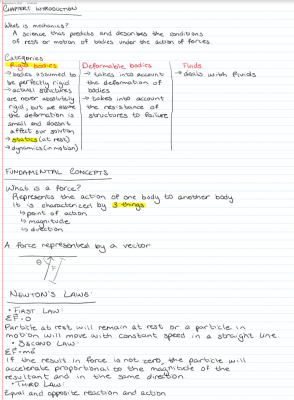 CHAPTER 1: INTRODUCTION
What is mechanics?
A science that predicts and describes the conditions
of rest or motion of bodies under the action of forces.
Categories
Rigid bodies
→ bodies assumed to
be perfectly rigid
→ actual structures
are never absolutely
rigid, but we assume
the deformation is
small and doesn't
affect our solution
→ statics (at rest)
→ dynamics (in motion)
Deformable bodies
→ takes into account
the deformation of
bodies
→ takes into account
the resistance of
structures to failure
Fluids
→ deals with fluids
FUNDAMENTAL CONCEPTS
What is a force?
Represents the action of one body to another body
It is characterized by 3 things
↳ point of action
↳ magnitude
↳ direction
A force represented by a vector
θ F
NEWTON'S LAWS:
• FIRST LAW:
ΣF=0
Particle at rest will remain at rest or a particle in
motion will move with constant speed in a straight line.
• SECOND LAW:
ΣF=ma
If the result in force is not zero, the particle will
accelerate proportional to the magnitude of the
resultant and in the same direction.
• THIRD LAW:
Equal and opposite reaction and action